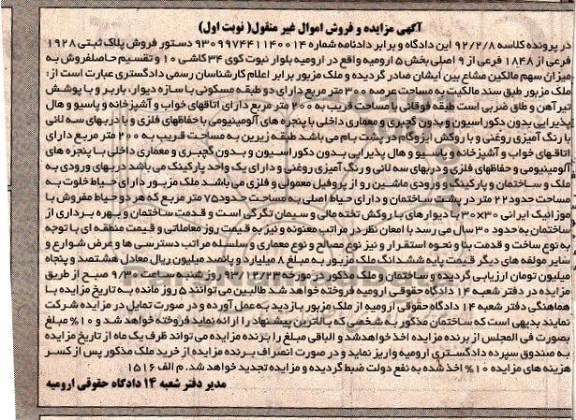 آگهی مزایده و فروش اموال غیر منقول( نوبت اول)
در پرونده کلاسه ۹۲/۲/۸ این دادگاه و برابر دادنامه شماره ۹۳۰۹۹۷۴۴۱۱۴۰۰۱۴ دستور فروش پلاک ثبتی ۱۹۲۸
فرعی از ۱۸۴۸ فرعی از ۹ اصلی بخش ۵ ارومیه واقع در ارومیه بلوار نبوت کوی ۳۴ کاشی ۱۰ و تقسیم حاصلفروش به
میزان سهم مالکین مشاع بین ایشان صادر گردیده و ملک مزبور برابر اعلام کارشناسان رسمی دادگستری عبارت است از:
ملک مزبور طبق سند مالکیت به مساحت عرصه ۳۰۰ متر مربع دارای دو طبقه مسکونی با سازه دیوار، باربر و با پوشش
تیرآهن و طاق ضربی است طبقه فوقانی با مساحت قریب به ۲۰۰ متر مربع دارای اتاقهای خواب و آشپزخانه و پاسیو و هال
پذیرایی بدون دکوراسیون و بدون گچبری و معماری داخلی با پنجره های آلومینیومی با حفاظهای فلزی و با دربهای سه لائی
با رنگ آمیزی روغنی و با روکش ایزوگام در پشت بام می باشد طبقه زیرین به مساحت قریب به ۲۰۰ متر مربع دارای
اتاقهای خواب و آشپزخانه و پاسیو و هال پذیرایی بدون دکوراسیون و بدون گچبری و معماری داخلی با پنجره های
آلومینیومی و حفاظهای فلزی و دربهای سه لائی و رنگ آمیزی روغنی و دارای یک واحد پارکینگ می باشد دربهای ورودی به
ملک و ساختمان و پارکینگ و ورودی ماشین رو از پروفیل معمولی و فلزی می باشد ملک مزبور دارای حیاط خلوت به
مساحت حدود ۲۲ متر در پشت ساختمان و دارای حیاط اصلی به مساحت حدود ۷۵ متر مربع که هر دو حیاط مفروش با
موزائیک ایرانی ۳۰×۳۰ با دیوارهای با روکش تخته مالی و سیمان تگرگی است و قدمت ساختمان و بهره برداری از
ساختمان به حدود ۳۰ سال می رسد با امعان نظر در مراتب معنونه و نیز به قیمت روز معاملاتی و قیمت منطقه ای با توجه
به نوع ساخت و قدمت بنا و نحوه استقرار و نیز نوع مصالح و نوع معماری و سلسله مراتب دسترسی ها و عرض شوارع و
سایر مولفه های دیگر قیمت پایه ششدانگ ملک مزبور به مبلغ ۸ میلیارد و پانصد میلیون ریال معادل هشتصد و پنجاه
میلیون تومان ارزیابی گردیده و ساختمان و ملک مذکور در مورخه ۹۳/۱۲/۲۳ روز شنبه ساعت ۹/۳۰ صبح از طریق
مزایده در دفتر شعبه ۱۴ دادگاه حقوقی ارومیه فروخته خواهد شد طالبین می توانند ۵ روز مانده به تاریخ مزایده با
هماهنگی دفتر شعبه ۱۴ دادگاه حقوقی ارومیه از ملک مزبور بازدید به عمل آورده و در صورت تمایل در مزایده شرکت
نمایند بدیهی است که ساختمان مذکور به شخصی که بالاترین پیشنهاد را ارائه نماید فروخته خواهد شد و ۱۰٪ مبلغ
بصورت فی المجلس از برنده مزایده اخذ خواهد شد و الباقی مبلغ را برنده مزایده می تواند ظرف یک ماه از تاریخ مزایده
به صندوق سپرده دادگستری ارومیه واریز نماید و در صورت انصراف برنده مزایده از خرید ملک مذکور پس از کسر
هزینه های مزایده ۱۰٪ اخذ شده به نفع دولت ضبط گردیده و مزایده تجدید خواهد شد. م الف ۱۵۱۶
مدیر دفتر شعبه ۱۴ دادگاه حقوقی ارومیه